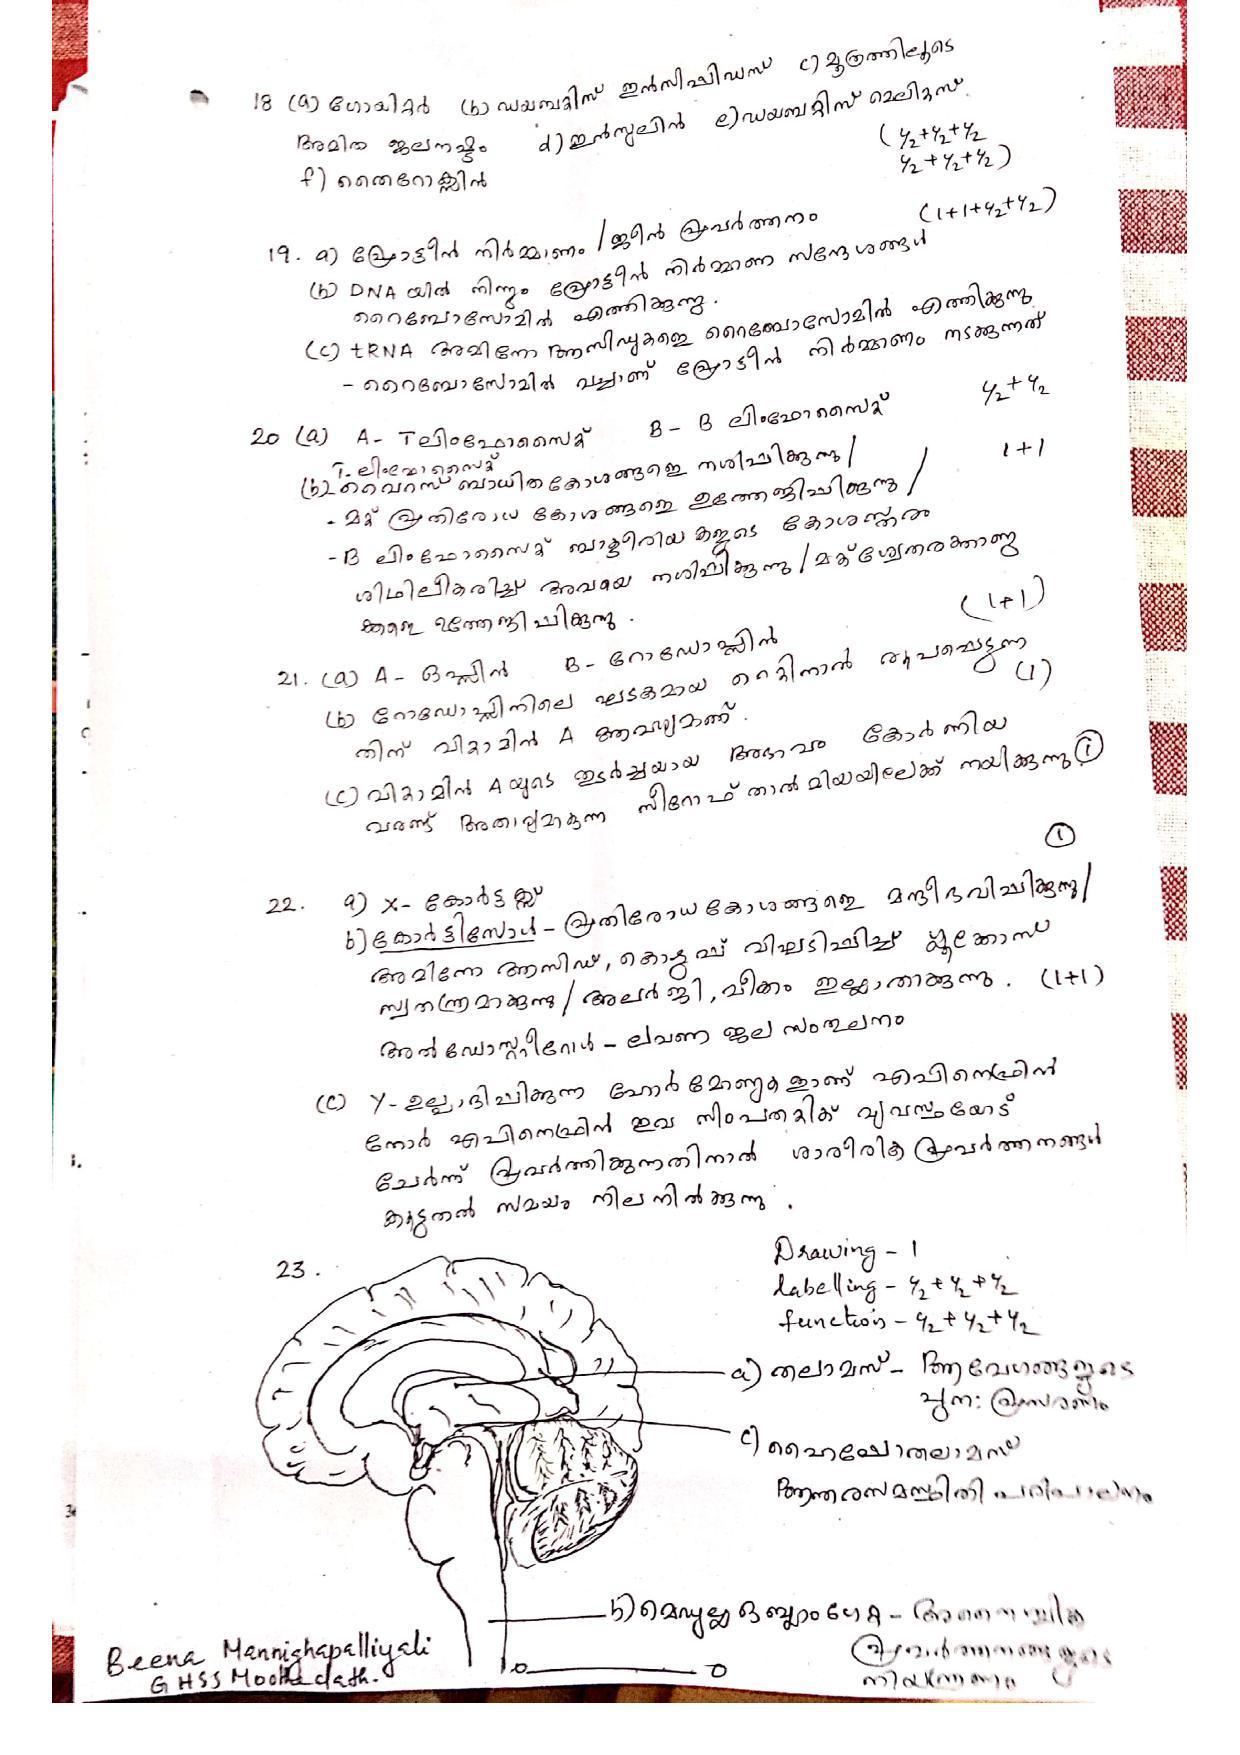 18 (a) ഗോയിറ്റർ (b) ഡയബറ്റിസ് ഇൻസിപ്പിഡസ് c) മൂത്രത്തിലൂടെ
അമിത ജലനഷ്ടം d) ഇൻസുലിൻ e) ഡയബറ്റിസ് മെലിറ്റസ്.
f) തൈറോക്സിൻ
(½+½+½
½+½+½)
19. a) പ്രോട്ടീൻ നിർമ്മാണം / ജീൻ പ്രവർത്തനം (1+1+½+½)
(b) DNA യിൽ നിന്നും പ്രോട്ടീൻ നിർമ്മാണ സന്ദേശങ്ങൾ
റൈബോസോമിൽ എത്തിക്കുന്നു.
(c) tRNA അമിനോ ആസിഡുകളെ റൈബോസോമിൽ എത്തിക്കുന്നു
- റൈബോസോമിൽ വച്ചാണ് പ്രോട്ടീൻ നിർമ്മാണം നടക്കുന്നത്
20 (a) A- T ലിംഫോസൈറ്റ് B- B ലിംഫോസൈറ്റ് ½+½
T- ലിംഫോസൈറ്റ്
(b) വൈറസ് ബാധിത കോശങ്ങളെ നശിപ്പിക്കുന്നു / 1+1
- മറ്റ് പ്രതിരോധ കോശങ്ങളെ ഉത്തേജിപ്പിക്കുന്നു /
- B ലിംഫോസൈറ്റ് ബാക്ടീരിയകളുടെ കോശസ്തരം
ശിഥിലീകരിച്ച് അവയെ നശിപ്പിക്കുന്നു / മറ്റ് ശ്വേതരക്താണു
ക്കളെ ഉത്തേജിപ്പിക്കുന്നു.
21. (a) A- ഓപ്സിൻ B- റോഡോപ്സിൻ (1+1)
(b) റോഡോപ്സിനിലെ ഘടകമായ റെറ്റിനാൽ രൂപപ്പെടുന്ന
തിന് വിറ്റാമിൻ A ആവശ്യമാണ്. (1)
(c) വിറ്റാമിൻ A യുടെ തുടർച്ചയായ അഭാവം കോർണിയ
വരണ്ട് അതാര്യമാകുന്ന സീറോഫ്താൽമിയയിലേക്ക് നയിക്കുന്നു (1)
(1)
22. a) X- കോർട്ടക്സ്
b) കോർട്ടിസോൾ - പ്രതിരോധ കോശങ്ങളെ മന്ദീഭവിപ്പിക്കുന്നു /
അമിനോ ആസിഡ്, കൊഴുപ്പ് വിഘടിപ്പിച്ച് ഗ്ലൂക്കോസ്
സ്വതന്ത്രമാക്കുന്നു / അലർജി, വീക്കം ഇല്ലാതാക്കുന്നു. (1+1)
അൽഡോസ്റ്റീറോൾ - ലവണ ജല സംതുലനം
(c) Y- ഉല്പാദിപ്പിക്കുന്ന ഹോർമോണുകളാണ് എപിനെഫ്രിൻ
നോർ എപിനെഫ്രിൻ ഇവ സിംപതറ്റിക് വ്യവസ്ഥയോട്
ചേർന്ന് പ്രവർത്തിക്കുന്നതിനാൽ ശാരീരിക പ്രവർത്തനങ്ങൾ
കൂടുതൽ സമയം നിലനിൽക്കുന്നു.
23.
Drawing - 1
labelling - ½+½+½
function - ½+½+½
a) തലാമസ് - ആവേഗങ്ങളുടെ
പുന: പ്രസരണം
c) ഹൈപ്പോതലാമസ്
ആന്തരസമസ്ഥിതി പരിപാലനം
b) മെഡുല്ല ഒബ്ലാംഗേറ്റ - അനൈച്ഛിക
പ്രവർത്തനങ്ങളുടെ
നിയന്ത്രണം
Beena Mannishapalliyali
GHSS Moothedath.